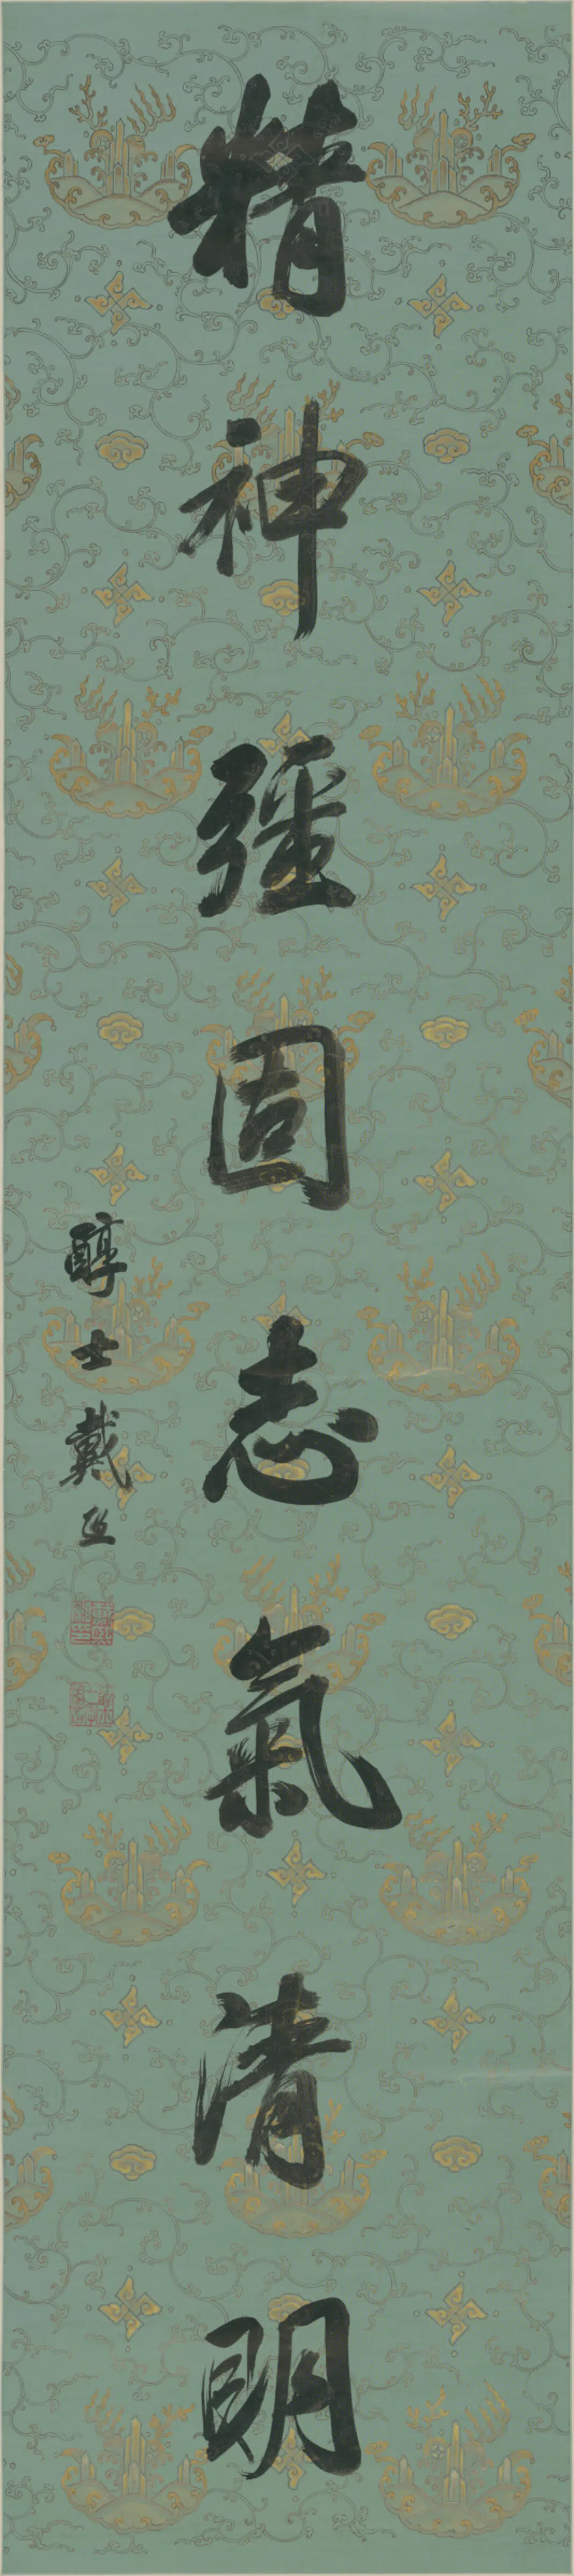 精神彊固志氣清明
醇士戴熙